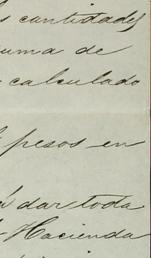 cantidades
suma de
calculado
pesos en
dar toda
Hacienda